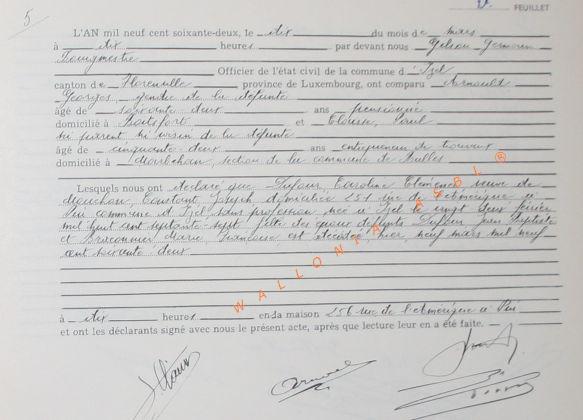 5
FEUILLET
L'AN mil neuf cent soixante-deux, le dix du mois de mars
à dix heures par devant nous
Officier de l'état civil de la commune d' Izel
canton de Florenville province de Luxembourg, ont comparu Arnould
Georges, gendre de la défunte
âgé de soixante deux ans pensionné
domicilié à Boitsfort et Paul
ni parent ni voisin de la défunte
âgé de cinquante-deux ans entrepreneur de travaux
domicilié à Marbehan, section de la commune de Rulles
Lesquels nous ont déclaré que Dufour, Caroline Clémence veuve de
Constant, Joseph, domiciliée 251 rue de l'Amérique à
Pin commune d'Izel, sans profession née à Izel le vingt deux
mil huit cent septante-sept, fille des époux défunts Dufour Jean Baptiste
et Braconnier Marie, Françoise est décédée, hier, neuf mars mil neuf
cent soixante deux
à dix heures en da maison 256 rue de l'Amérique à Pin
et ont les déclarants signé avec nous le présent acte, après que lecture leur en a été faite.
WALLONTAFEL ®